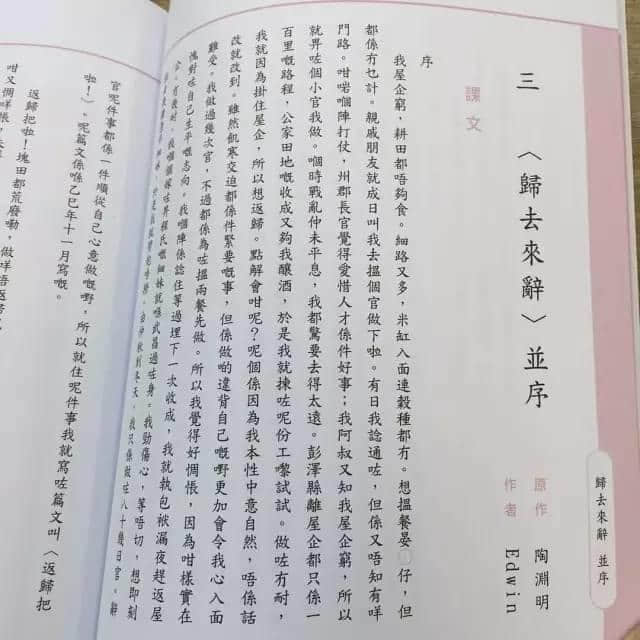 歸去來辭 並序
三 〈歸去來辭〉並序
原作 陶淵明
作者 Edwin
課文
序
我屋企窮，耕田都唔夠食。細路又多，米缸入面連穀種都冇。想搵餐晏仔，但
都係冇乜計。親戚朋友就成日叫我去搵個官做下啦。有日我諗通咗，但係又唔知有咩
門路。咁啱嗰陣打仗，州郡長官覺得愛惜人才係件好事；我阿叔又知我屋企窮，所以
就畀咗個小官我做。嗰時戰亂仲未平息，我都驚要去得太遠。彭澤縣離屋企都只係一
百里嘅路程，公家田地嘅收成又夠我釀酒，於是我就揀咗呢份工嚟試試。做咗冇耐，
我就因為掛住屋企，所以想返歸。點解會咁呢？呢個係因為我本性中意自然，唔係話
改就改到。雖然飢寒交迫都係件緊要嘅事，但係做啲違背自己嘅嘢更加會令我心入面
難受。我做過幾次官，不過都係為咗搵兩餐先做。所以我覺得好惆悵，因為咁樣實在
愧對咗自己生平嘅志向。我嗰陣係諗住等過埋下一次收成，我就執包袱漏夜趕返屋
企。冇幾耐，我嗰個嫁咗畀程氏嘅細妹就喺武昌過咗身。我勁傷心，等唔切，想即刻
由仲秋到冬天，我只係做咗八十幾日官。辭
官呢件事都係一件順從自己心意做嘅嘢，所以就住呢件事我就寫咗篇文叫〈返歸把
啦！〉。呢篇文係喺乙巳年十一月寫嘅。
返歸把啦！塊田都荒廢嘞，做咩唔返歸